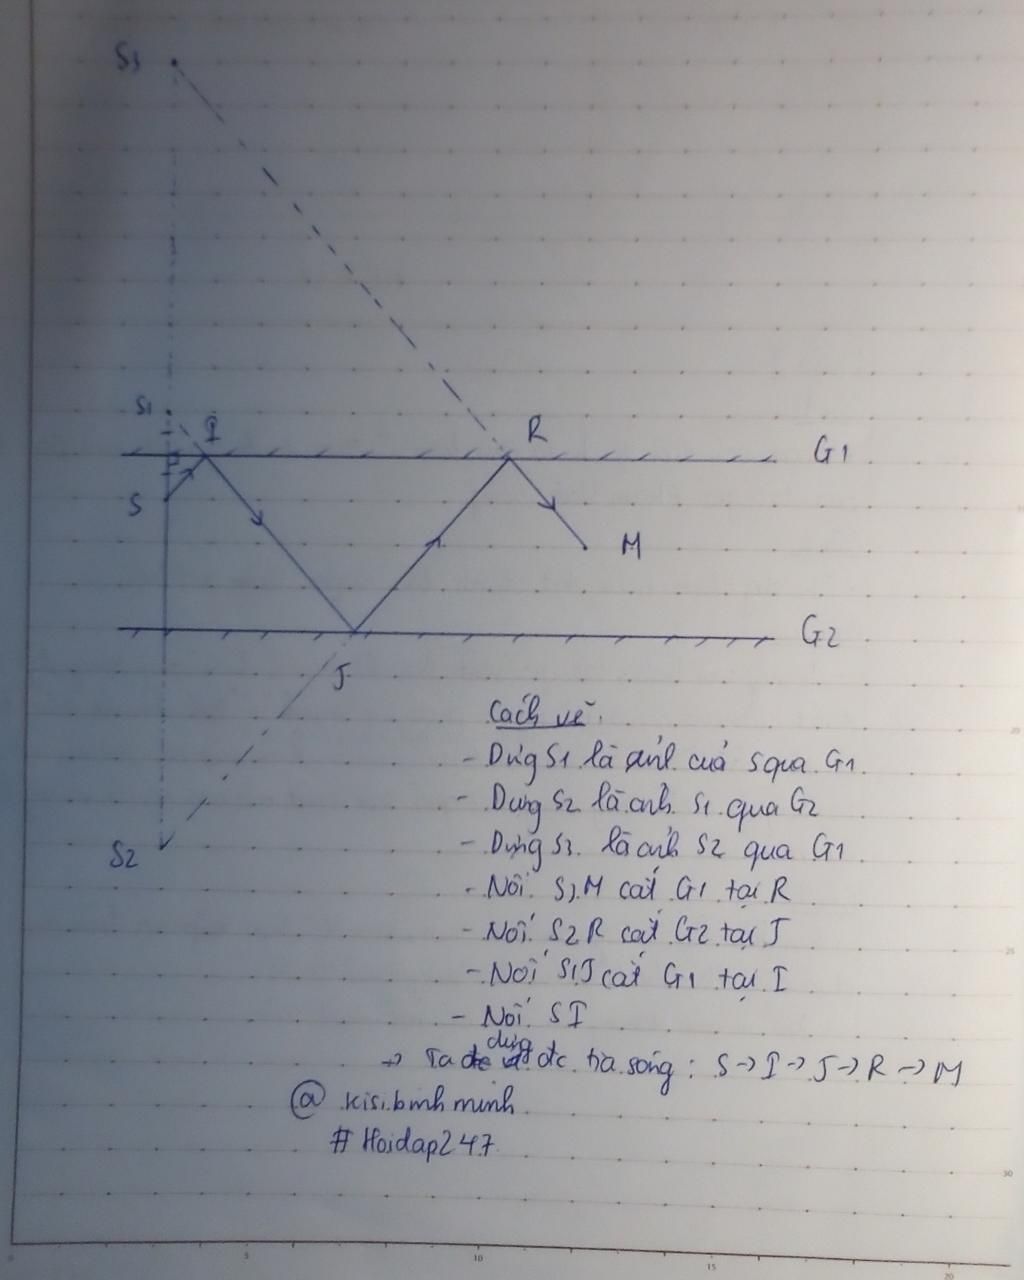 S3
S1
I
R
G1
S
M
G2
J
S2
Cách vẽ.
- Dựng S1 là ảnh của S qua G1.
- Dựng S2 là ảnh S1 qua G2
- Dựng S3 là ảnh S2 qua G1
- Nối S3M cắt G1 tại R
- Nối S2R cắt G2 tại J
- Nối S1J cắt G1 tại I
- Nối SI
dựng
→ Ta đc tia sáng : S → I → J → R → M
@ kisi.binh minh
# Hoidap247
0 5 10 15 20
20
25
30